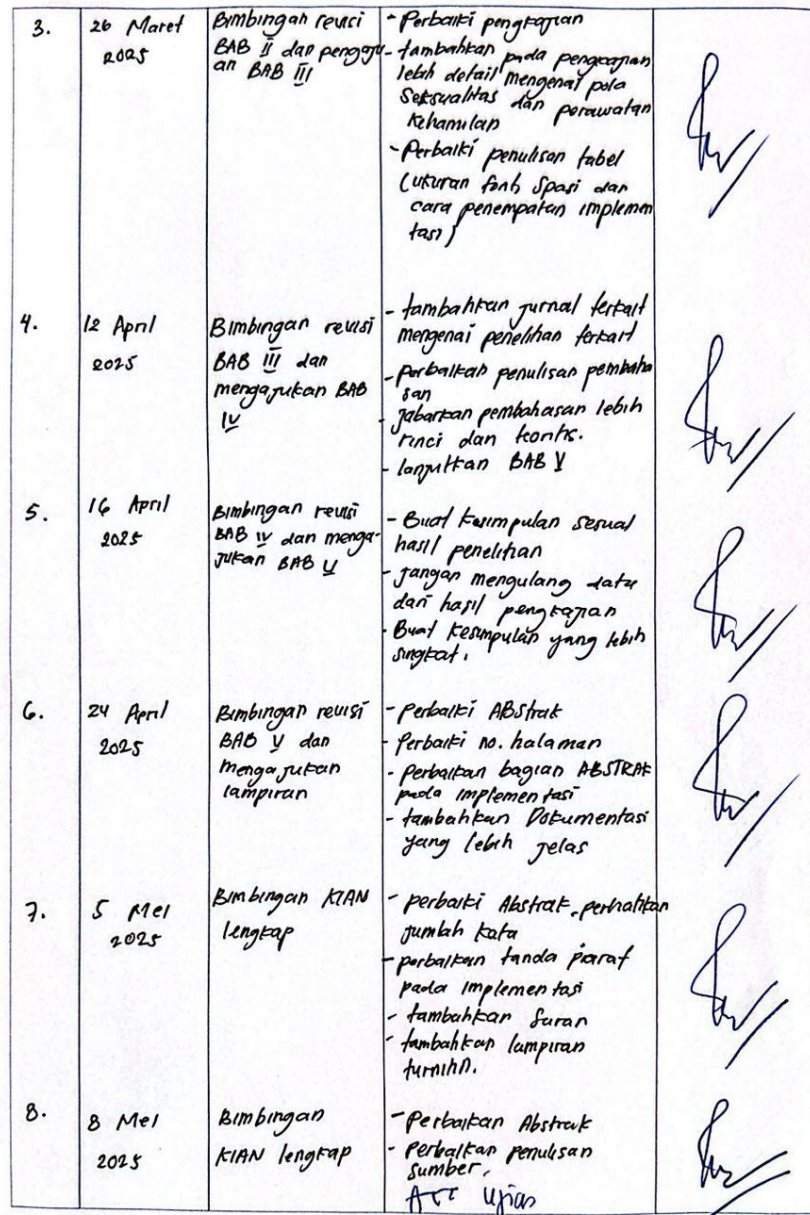 3.
26 Maret
2025
Bimbingan revisi
BAB II dan pengaju
an BAB III
- Perbaiki pengkajian
- tambahkan pada pengkajian
lebih detail mengenai pola
Seksualitas dan perawatan
Kehamilan
- Perbaiki penulisan tabel
(ukuran font, Spasi dan
cara penempatan implemen
tasi)
4.
12 April
2025
Bimbingan revisi
BAB III dan
mengajukan BAB
IV
- tambahkan jurnal terkait
mengenai penelitian terkait
- perbaikan penulisan pembaha
san
- jabarkan pembahasan lebih
rinci dan kritis.
- lanjutkan BAB V
5.
16 April
2025
Bimbingan revisi
BAB IV dan menga-
jukan BAB V
- Buat kesimpulan sesuai
hasil penelitian
- jangan mengulang data
dari hasil pengkajian
- Buat kesimpulan yang lebih
singkat.
6.
24 April
2025
Bimbingan revisi
BAB V dan
mengajukan
lampiran
- perbaiki ABStrak
- Perbaiki no. halaman
- perbaikan bagian ABSTRAK
pada implementasi
- tambahkan Dokumentasi
yang lebih jelas
7.
5 Mei
2025
Bimbingan KIAN
lengkap
- perbaiki Abstrak, perhatikan
jumlah kata
- perbaikan tanda paraf
pada implementasi
- tambahkan Saran
- tambahkan lampiran
turnitin.
8.
8 Mei
2025
Bimbingan
KIAN lengkap
- Perbaikan Abstrak
- Perbaikan penulisan
sumber.
Acc Ujian